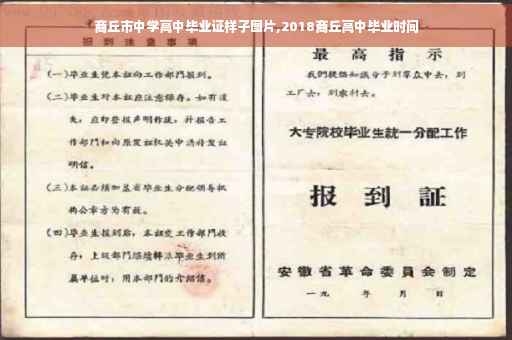 商丘市中学高中毕业证样子图片,2018商丘高中毕业时间
报到注意事项
(一)毕业生凭本证向工作部门报到。
(二)毕业生对本证应注意保存。如有遗
失,应即登报声明作废,并报告工
作部门和向原发证机关申请补发证
明信。
(三)本证必须加盖省毕业生分配领导机
构公章方为有效。
(四)毕业生报到后,本证交工作部门收
存;上级部门继续转派毕业生到所
属单位时,用本部门的介绍信。
最高指示
我们提倡知识分子到群众中去,到
工厂去,到农村去。
大专院校毕业生統一分配工作
报到証
安徽省革命委員会制定
一九 年 月 日